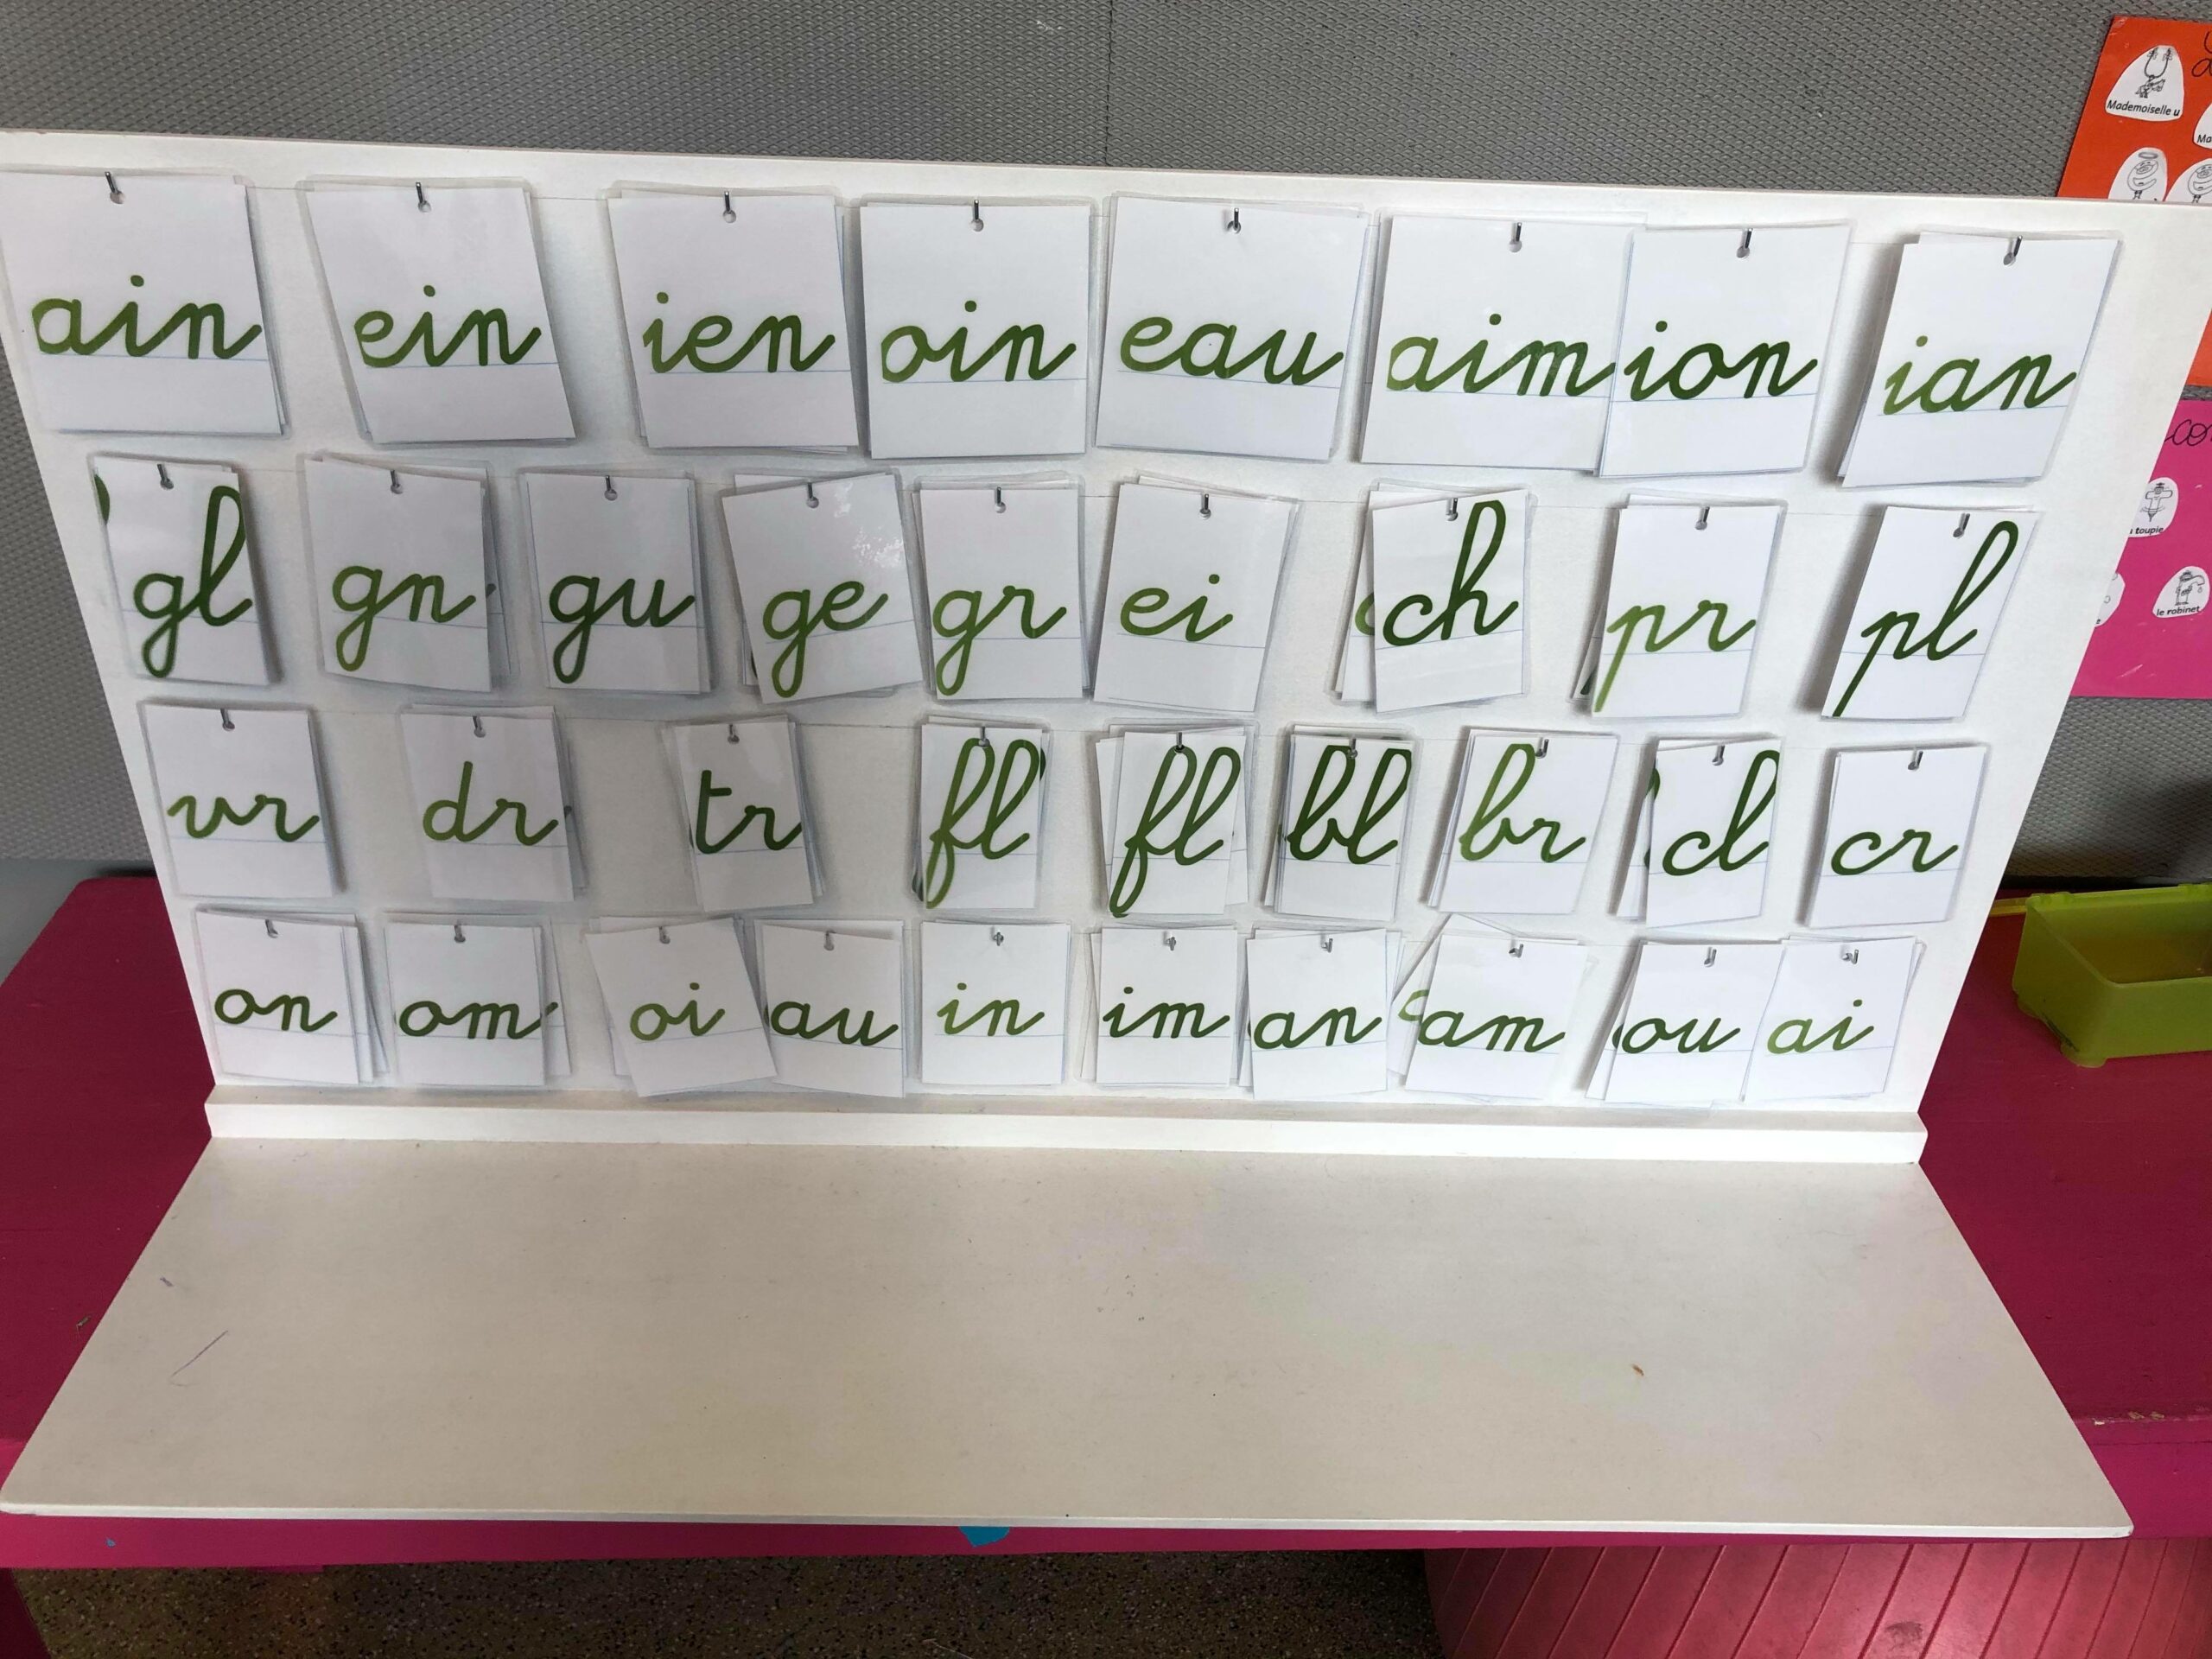 Mademoiselle u
ain ein ien oin eau aim ion ian
gl gn gu ge gr ei ch pr pl
toupie
le robinet
vr dr tr fl fl bl br cl cr
on om oi au in im an am ou ai